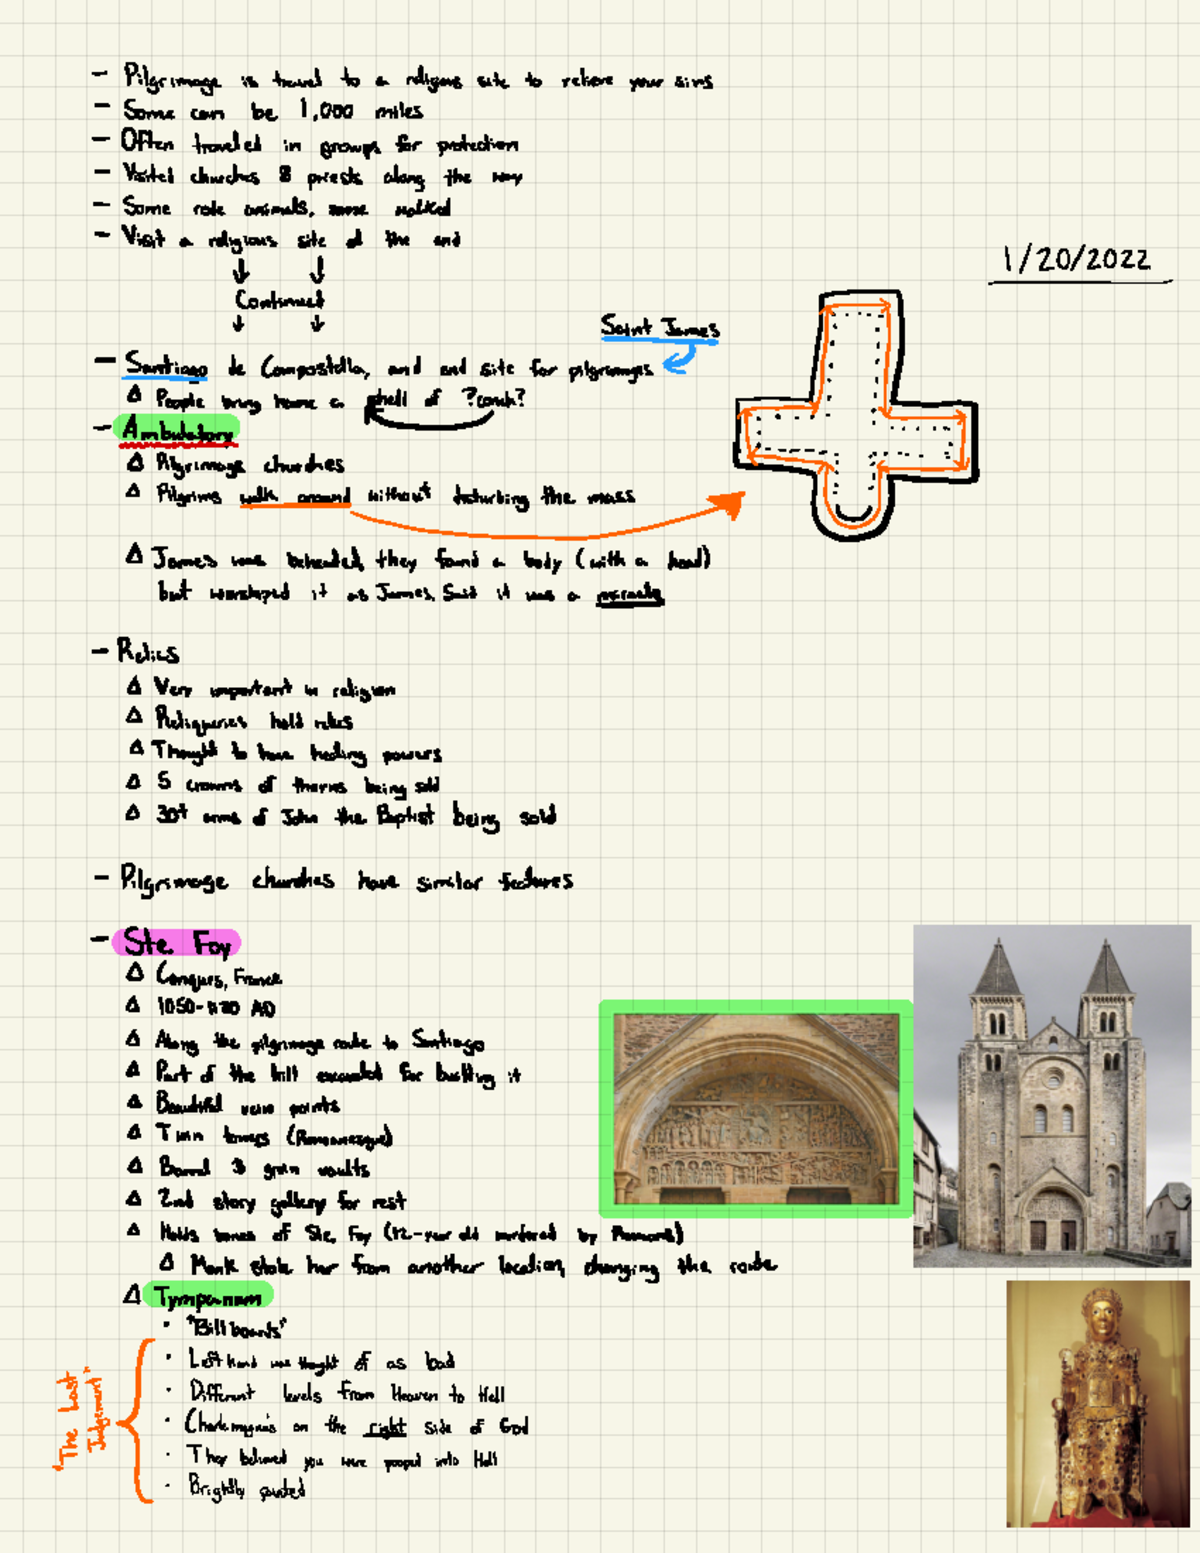 - Pilgrimage is travel to a religious site to relieve your sins
- Some can be 1,000 miles
- Often traveled in groups for protection
- Visited churches & priests along the way
- Some rode animals, some walked
- Visit a religious site at the end
1/20/2022
Continued
Saint James
- Santiago de Compostella, and end site for pilgrimages
Δ People bring home a shell of ?conch?
- Ambulatory
Δ Pilgrimage churches
Δ Pilgrims walk around without disturbing the mass
Δ James was beheaded, they found a body (with a head)
but worshiped it as James. Said it was a miracle
- Relics
Δ Very important in religion
Δ Reliqueries hold relics
Δ Thought to have healing powers
Δ 5 crowns of thorns being sold
Δ 30+ arms of John the Baptist being sold
- Pilgrimage churches have similar features
- Ste. Foy
Δ Conques, France
Δ 1050-1120 AD
Δ Along the pilgrimage route to Santiago
Δ Part of the hill excavated for building it
Δ Beautiful view points
Δ Twin towers (Romanesque)
Δ Barrel & groin vaults
Δ 2nd story gallery for rest
Δ Holds bones of Ste. Foy (12-year old murdered by Romans)
Δ Monk stole her from another location, changing the route
Δ Tympanum
• "Billboards"
• Left hand was thought of as bad
• Different levels from Heaven to Hell
• Charlemagne's on the right side of God
• They believed you were pooped into Hell
• Brightly painted
"The Last
Judgement"